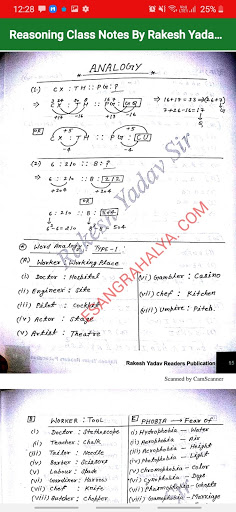 12:28
25%
Reasoning Class Notes By Rakesh Yada...
ANALOGY
(1) CX : TH :: PG : ?
OR
(2) 6 : 210 :: 8 : ?
6 : 210 :: 8 : 212
+204 +204
OR
6 : 210 :: 8 : 504
Word Analogy : TYPE-1
(A) Worker : Working Place
(i) Doctor : Hospital
(ii) Engineer : Site
(iii) Pilot : Cockpit
(iv) Actor : Stage
(v) Artist : Theatre
(vi) Gambler : Casino
(vii) Chef : Kitchen
(viii) Umpire : Pitch
Rakesh Yadav Sir
ESANGRAHALYA.COM
Rakesh Yadav Readers Publication
95
Scanned by CamScanner
WORKER : TOOL
(i) Doctor : Stethoscope
(ii) Teacher : Chalk
(iii) Tailor : Needle
(iv) Barber : Scissors
(v) Labour : Spade
(vi) Gardener : Harrow
(vii) Chef : Knife
(viii) Butcher : Chopper
PHOBIA : Fear of
(i) Hydrophobia - Water
(ii) Aerophobia - Air
(iii) Acrophobia - Height
(iv) Photophobia - Light
(v) Chromophobia - Color
(vi) Cynophobia - Dogs
(vii) Phasmophobia - Ghosts
(viii) Gamophobia - Marriage